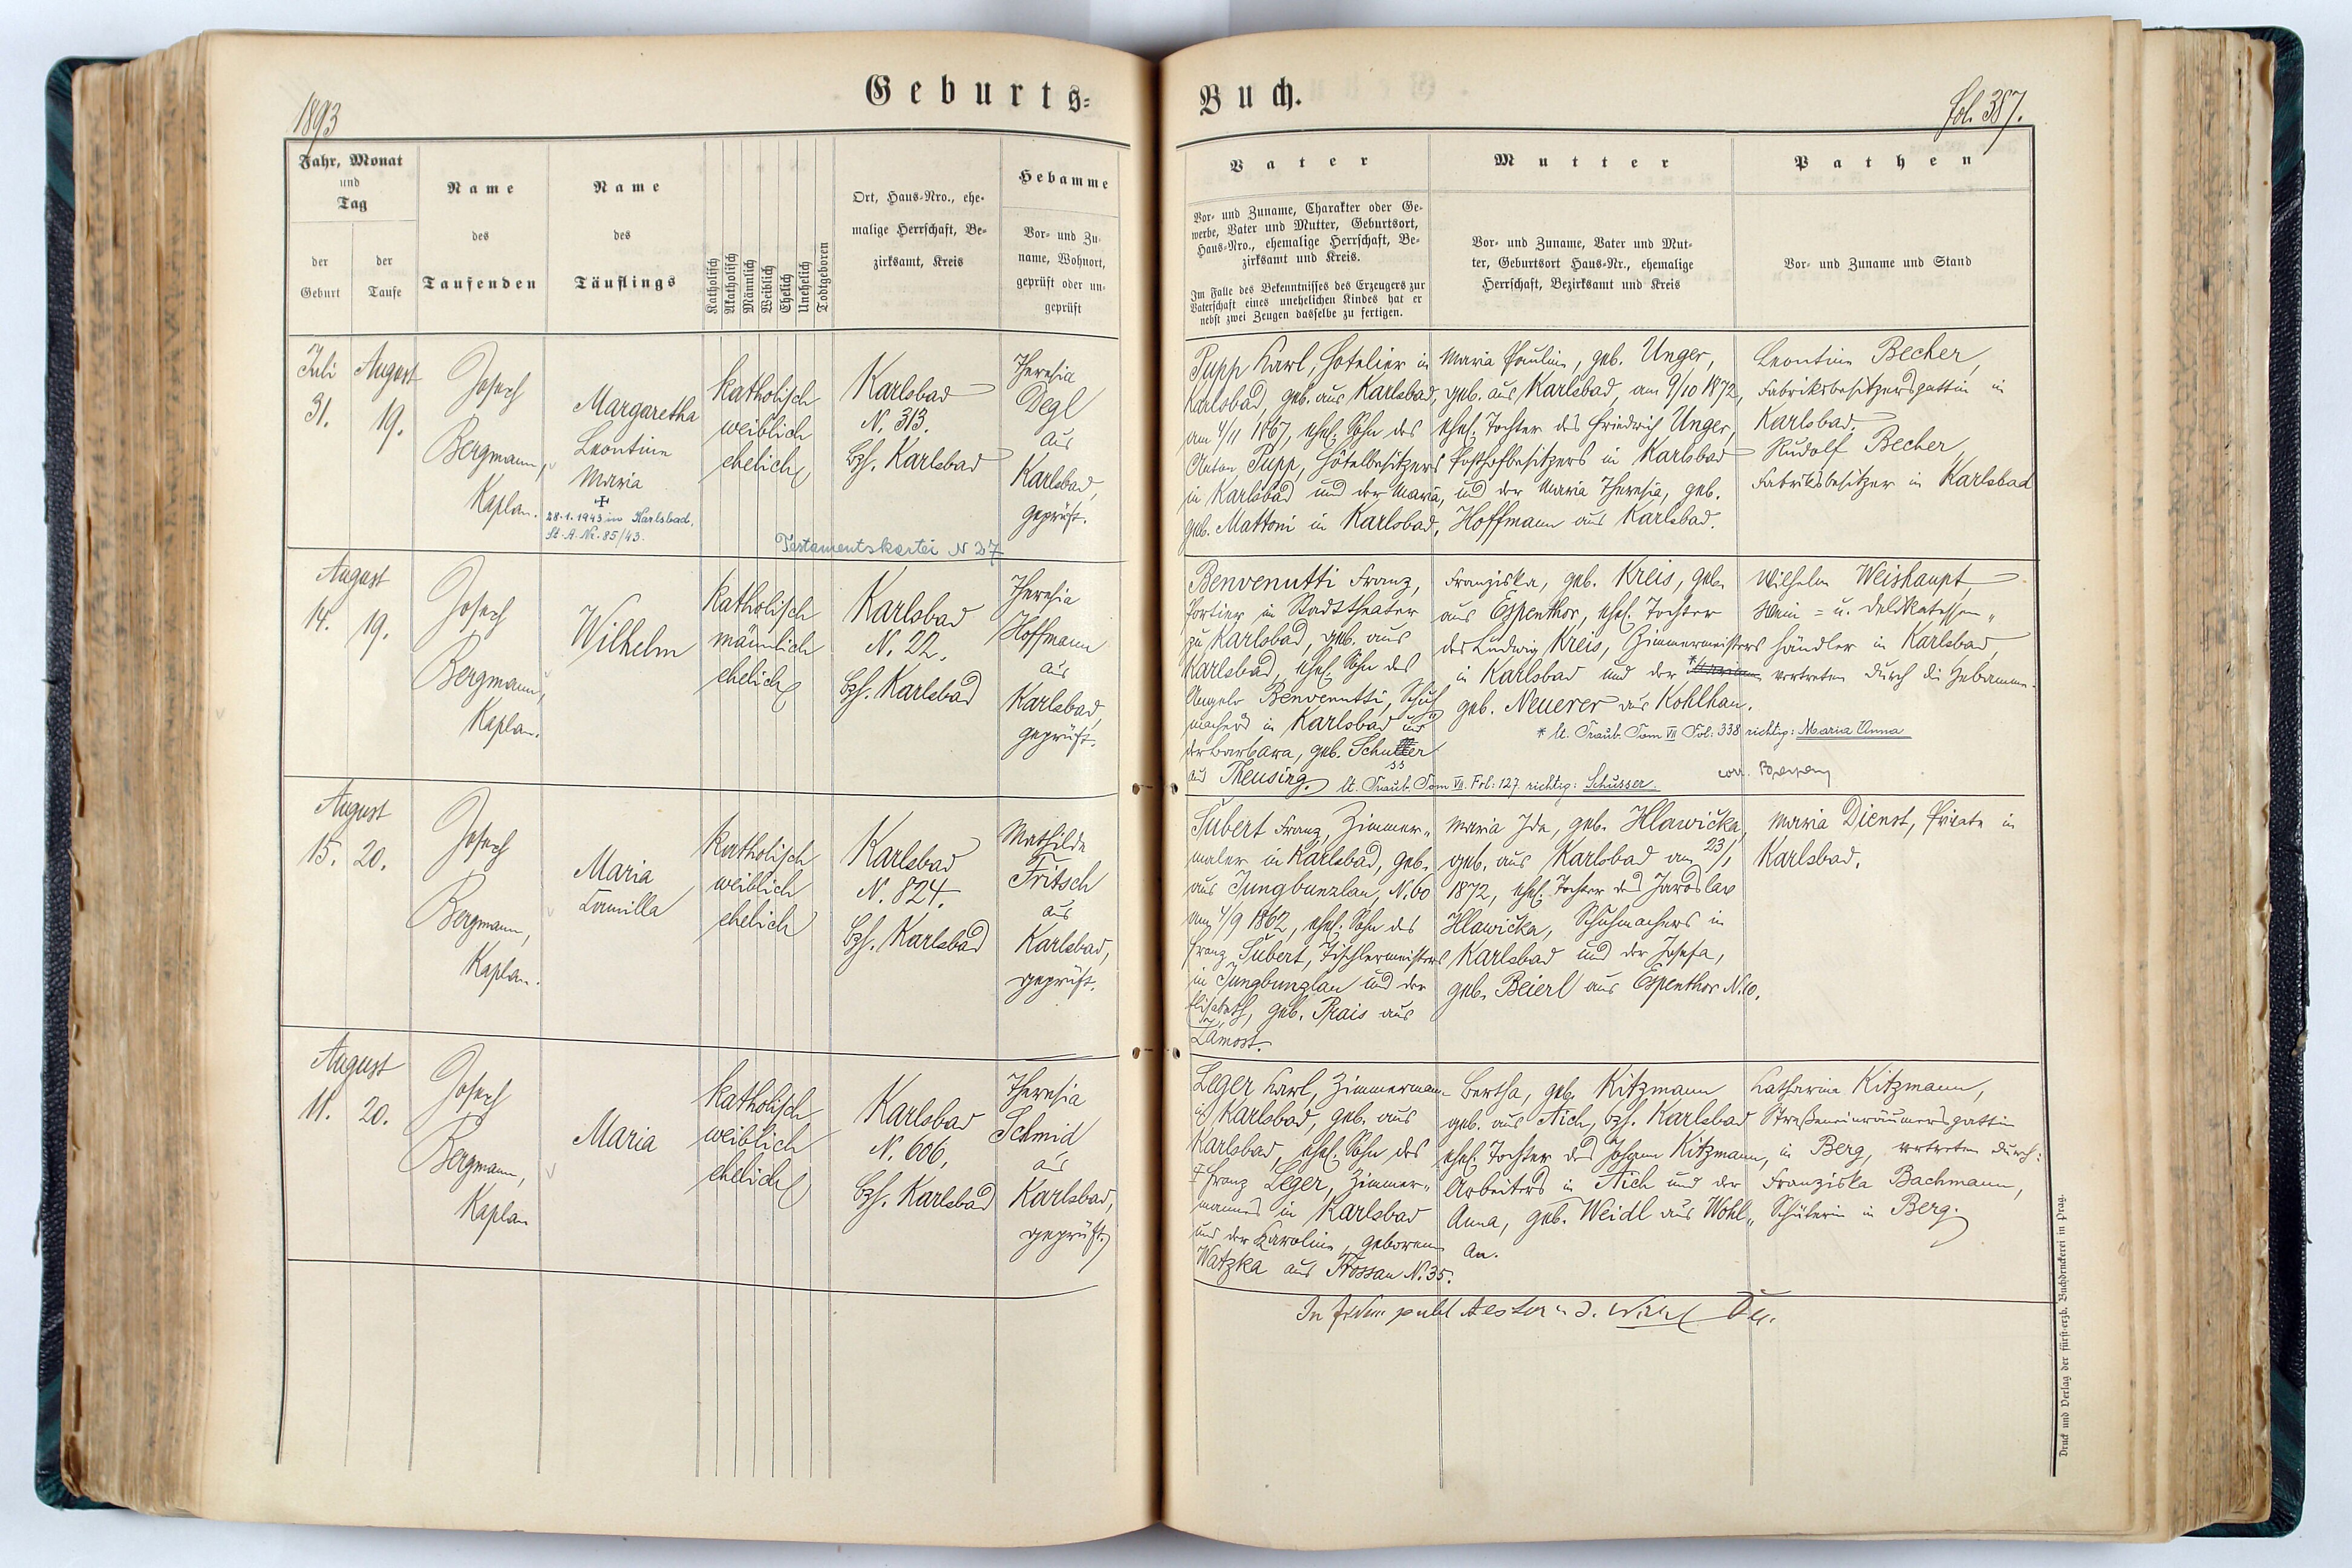 1893
Geburts=
Buch.
Fol. 387.
Fahr, Monat
und
Tag
der
Geburt
der
Taufe
Name
des
Taufenden
Name
des
Täuflings
Katholisch
Akatholisch
Männlich
Weiblich
Ehelich
Unehelich
Todtgeboren
Ort, Haus-Nro., ehe-
malige Herrschaft, Be-
zirksamt, Kreis
Hebamme
Vor- und Zu-
name, Wohnort,
geprüft oder un-
geprüft
Vater
Vor- und Zuname, Charakter oder Ge-
werbe, Vater und Mutter, Geburtsort,
Haus-Nro., ehemalige Herrschaft, Be-
zirksamt und Kreis.
Im Falle des Bekenntnisses des Erzeugers zur
Vaterschaft eines unehelichen Kindes hat er
nebst zwei Zeugen dasselbe zu fertigen.
Mutter
Vor- und Zuname, Vater und Mut-
ter, Geburtsort Haus-Nr., ehemalige
Herrschaft, Bezirksamt und Kreis
Pathen
Vor- und Zuname und Stand
Juli
31.
August
19.
Josef
Bergmann,
Kaplan.
Margaretha
Leontine
Maria
✝
28.1.1943 in Karlsbad.
St.A.Nr. 85/43.
katholisch
weiblich
ehelich
Testamentskartei N 27
Karlsbad
N. 313.
Bzh. Karlsbad
Theresia
Degl
aus
Karlsbad,
geprüft.
Pupp Karl, Hotelier in
Karlsbad, geb. aus Karlsbad,
am 4/11 1867, ehel. Sohn des
Anton Pupp, Hôtelbesitzers
in Karlsbad und der Maria,
geb. Mattoni in Karlsbad.
Maria Paulin, geb. Unger,
geb. aus Karlsbad, am 9/10 1872,
ehel. Tochter des Friedrich Unger,
Posthofbesitzers in Karlsbad
und der Maria Theresia, geb.
Hoffmann aus Karlsbad.
Leontine Becher,
Fabriksbesitzersgattin in
Karlsbad.
Rudolf Becher,
Fabriksbesitzer in Karlsbad
August
14. 19.
Josef
Bergmann,
Kaplan.
Wilhelm
katholisch
männlich
ehelich
Karlsbad
N. 22.
Bzh. Karlsbad
Theresia
Hoffmann
aus
Karlsbad,
geprüft.
Benvenutti Franz,
Portier in Stadttheater
zu Karlsbad, geb. aus
Karlsbad, ehel. Sohn des
Angelo Benvenutti, Schuh
machers in Karlsbad und
der Barbara, geb. Schutter
ss
aus Theusing. lt. Traub. Tom VII. Fol: 127 richtig: Schusser.
Franziska, geb. Kreis, geb.
aus Espenthor, ehel. Tochter
des Ludwig Kreis, Zimmermeisters
in Karlsbad und der *
geb. Neuerer aus Kohlhau.
* lt. Traub. Tom VII Fol: 338 richtig: Maria Anna
corr.
Wilhelm Weishaupt,
Wein = u. Delikatessen
händler in Karlsbad,
vertreten durch die Hebamme.
August
15. 20.
Josef
Bergmann,
Kaplan.
Maria
Camilla
katholisch
weiblich
ehelich
Karlsbad
N. 824.
Bzh. Karlsbad
Mathilde
Fritsch
aus
Karlsbad,
geprüft.
Šubert Franz, Zimmer-
maler in Karlsbad, geb.
aus Jungbunzlau, N. 60
am 4/9 1862, ehel. Sohn des
Franz Šubert, Tischlermeisters
in Jungbunzlau und der
Elisabeth, geb. Prais aus
Zámost.
Maria Ida, geb. Hlawička,
geb. aus Karlsbad am 23/1
1872, ehel. Tochter des Jaroslav
Hlawička, Schuhmachers in
Karlsbad und der Josefa,
geb. Beierl aus Espenthor N. 10.
Maria Dienst, Private in
Karlsbad.
August
11. 20.
Josef
Bergmann,
Kaplan
Maria
katholisch
weiblich
ehelich
Karlsbad
N. 606,
Bzh. Karlsbad
Theresia
Schmid
aus
Karlsbad,
geprüft.
Leger Karl, Zimmermann
in Karlsbad, geb. aus
Karlsbad, ehel. Sohn des
Franz Leger, Zimmer-
mannes in Karlsbad
und der Karoline, geborene
Watzka aus Kossau N. 35.
Bertha, geb. Kitzmann
geb. aus Aich, Bzh. Karlsbad
ehel. Tochter des Johann Kitzmann,
Arbeiters in Aich und der
Anna, geb. Weidl aus Wohl-
au.
Katharina Kitzmann,
Straßeneinräumersgattin
in Berg, vertreten durch:
Franziska Bachmann,
Schülerin in Berg.
In fidem publ
Druck und Verlag der fürst-erzb. Buchdruckerei in Prag.